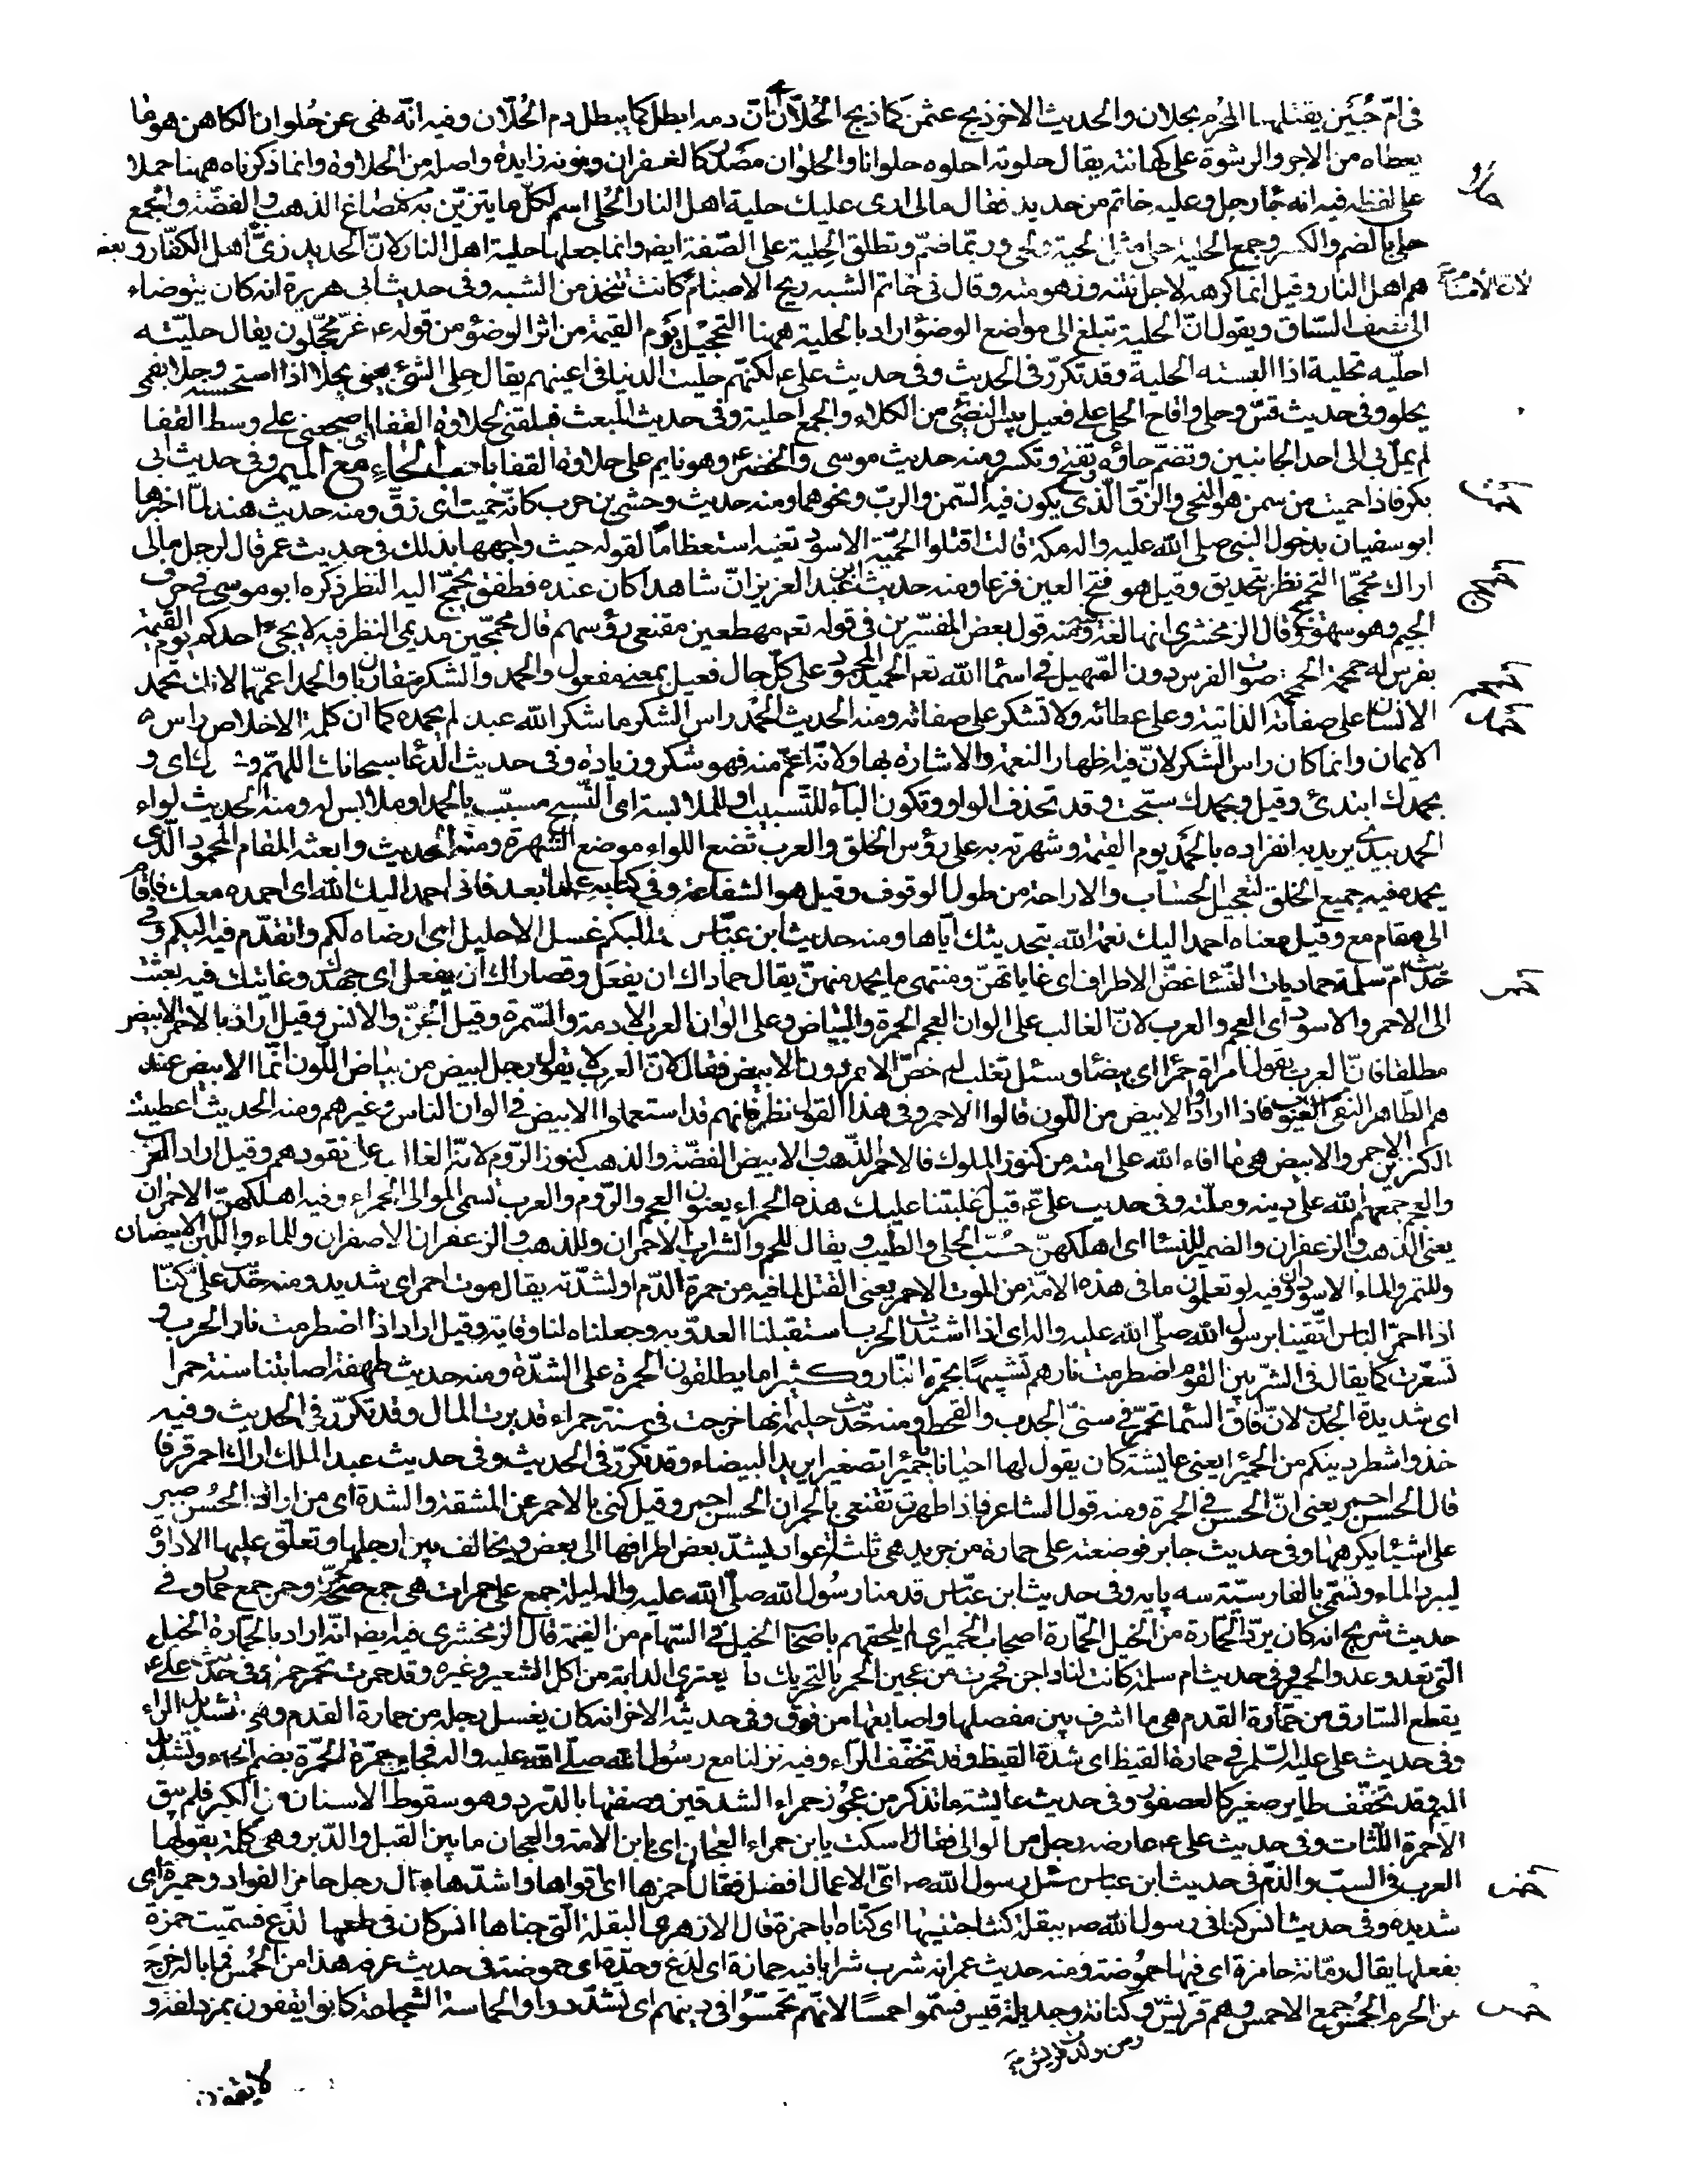 فى امّ حُبَين يقتلها المحُرم بحلان والحديث الاخر ذبح عثمن كما ذبح الحُلّان اى انّ دمه ابطل كما يبطل دم الحُلّان وفيه انّه نهى عن حُلوان الكاهن هو ما
يعطاه من الاجر والرشوة على كهانته يقال حلوته احلوه حلوانا والحلوان مصدر كالغفران ونونه زايدة واصله من الحلاوة وانما ذكرناه ههنا حملا
على لفظه فيه انه جاء رجل وعليه خاتم من حديد فقال مالى ارى عليك حلية اهل النار الحُلى اسم لكلّ ما يتزيّن به من مصاغ الذهب والفضّة والجمع
حلى بالضم والكسر وجمع الحلية حلى مثل لحية ولحى وربّما ضمّ وتطلق الحِلية على الصّفة ايضا وانما جعلها حلية اهل النار لانّ الحديد زىّ اهل الكفّار وبعض
هم اهل النار وقيل انما كرهه لاجل نتنه وزهومته وقال فى خاتم الشبه ريح الاصنام لانّ الاصنام كانت تتخذ من الشبه وفى حديث ابى هريرة انه كان يتوضاء
الى نصف السّاق ويقول انّ الحلية تبلغ الى مواضع الوضؤ اراد بالحلية ههنا التحجيل يَوم القيمة من اثر الوضؤ من قوله ع غرّ محجّلون يقال حليّته
احلّيه تحلية اذا البسته الحلية وقد تكرّر فى الحديث وفى حديث على ع لكنّهم حليت الدنيا فى اعينهم يقال حلى الشئ بعينى يحلا اذا استحسنته وحلا بفمى
يحلو وفى حديث قسّ وحلى واقاح الحلى على فعيل يبيس النصِىّ من الكلاء والجمع احلية وفى حديث المبعث فسلقنى لحلاوة القفا اى اضجعنى على وسط القفا
لم يمل بى الى احد الجانبين وتضمّ حاؤه وتفتح وتكسر ومنه حديث موسى والخضر ع وهو نايم على حلاوة القفا باب الحاء مع الميم وفى حديث ابى
بكر فاذا حميت من سمن هو النحى والزّقّ الّذى يكون فيه السّمن والربّ ونحوهما ومنه حديث وحشى بن حرب كانّه حميت اى زقّ ومنه حديث هند لمّا اخبرها
ابو سفيان بدخول النبى صلى الله عليه واله مكة قالت اقتلوا الحميت الاسود تعنيه استعظاما لقوله حيث واجهها بذلك فى حديث عمر قال لرجل مالى
اراك محمّجا التحميج نظر بتحديق وقيل هو فتح العين فزعا ومنه حديث ابن عبد العزيز انّ شاهدا كان عنده فطفق يحمّج اليه النظر ذكره ابو موسى فى حرف
الجيم وهو سهو وقال الزمخشرى انها لغة فيه ومنه قول بعض المفسّرين فى قوله تعه مهطعين مقنعى رؤسهم قال محمّجين مديمى النظر فيه لا يجئ احدكم يوم القيمة
بفرس له حمحمة الحمحمة صوت الفرس دون الصّهيل فى اسماء الله تعه الحميد المحمود على كلّ حال فعيل بمعنى مفعول والحمد والشكر متقاربان والحمد اعمّهما لانك تحمد
الانسان على صفاته الذاتية وعلى عطائه ولا تشكر على صفاته ومنه الحديث الحمد راس الشكر ما شكر الله عبد لم يحمده كما انّ كلمة الاخلاص راس
الايمان وانما كان راس الشكر لانّ فيه اظهار النعمة والاشارة بها ولانّه اعمّ منه فهو شكر وزيادة وفى حديث الدّعا سبحانك اللهمّ و اى و
بحمدك ابتدئ وقيل وبحمدك سبّحت وقد تحذف الواو وتكون الباء للتّسبيب او للملابسة اى التّسبيح مسبّب بالحمد او ملابس له ومنه الحديث لواء
الحمد بيدى يريد به انفراده بالحَمد يوم القيمة وشهرته به على رؤس الخلق والعرب تضع اللواء موضع الشهرة ومنه الحديث وابعثه المقام المحمود الّذى
يحمده فيه جميع الخلق لتعجيل الحساب والاراحة من طول الوقوف وقيل هو الشفاعة وفى كتابه ع امّا بعد فانى احمد اليك الله اى احمده معك فاقام
الى مقام مع وقيل معناه احمد اليك نعمة الله بتحديثك اياها ومنه حديث ابن عبّاس احمد اليكم غسل الاحليل اى ارضاه لكم واتقدّم فيه اليكم وفى
حديث امّ سلمة حماديات النّساء غضّ الاطراف اى غاياتهنّ ومنتهى ما يحمد منهنّ يقال حماداك ان يفعَل وقصاراك ان يفعل اى جهدك وغايتك فيه بعثت
الى الاحمر والاسود اى العجم والعرب لانّ الغالب على الوان العجم الحمرة والبياض وعلى الوان العرب الادمة والسّمرة وقيل الجنّ والانس وقيل اراد بالاحمر الابيض
مطلقا فانّ العرب يقول امراة حمراء اى بيضاء وسئل ثعلب لم خصّ الاحمر دون الابيض فقال لانّ العرب لا يقول رجل ابيض من بياض اللّون انّما الابيض عند
هم الطّاهر النقى من العيوب فاذا ارادوا الابيض من اللّون قالوا الاحمر وفى هذا القول نظر فانهم قد استعملوا الابيض فى الوان الناس وغيرهم ومنه الحديث اعطيت
الكنزين الاحمر والابيض هى ما افاء الله على امته من كنوز الملوك فالاحمر الذّهب والابيض الفضّة والذهب كنوز الرّوم لانّه الغالب على نقودهم وقيل اراد العرب
والعجم جمعهم الله على دينه وملّته وفى حديث على ع قيل له غلبتنا عليك هذه الحمراء يعنون العجم والرّوم والعرب تسمى الموالى الحمراء وفيه اهلكهنّ الاحمران
يعنى الذهب والزعفران والضمير للنساء اى اهلكهنّ حُبّ الحلى والطّيب ويقال للحم والشراب الاحمران وللذهب والزعفران الاصفران وللماء واللبن الابيضان
وللتمر والماء الاسودان وفيه لو تعلمون ما فى هذه الامّة من الموت الاحمر يعنى القتل لما فيه من حمرة الدّم او لشدّته يقال موت احمر اى شديد ومنه حديث علىّ كنّا
اذا احمرّ الباس اتّقينا برسول الله صلّى الله عليه واله اى اذا اشتدّت الحرب استقبلنا العدوّ به وجعلناه لنا وقاية وقيل اراد اذا اضطرمت نار الحرب و
تسعّرت كما يقال فى الشر بين القوم اضطرمت نارهم تشبيها بحمرة النّار وكثيرا ما يطلقون الحمرة على الشدّة ومنه حديث طهفة اصابتنا سنة حمرا
اى شديدة الجدب لانّ آفاق السّماء تحمرّ فى سنىّ الجدب والقحط ومنه حديث حليمة انها خرجت فى سنة حمراء قد برت المال وقد تكرّر فى الحديث وفيه
خذوا شطر دينكم من الحميرا يعنى عايشة كان يقول لها احيانا يا حميرا تصغير حمرا يريد البيضاء وقد تكرّر فى الحديث وفى حديث عبد الملك اراك احمر قرفا
قال الحسن احمر يعنى انّ الحسن فى الحمرة ومنه قول الشاعر فاذا ظهرت تقنعى بالحمر ان الحسن احمر وقيل كنى بالاحمر عن المشقة والشدة اى من اراد الحُسن صبر
على اشياء يكرهها وفى حديث جابر فوضعته على حمارة من جريد هى ثلثة اعواد يشدّ بعض اطرافها الى بعض ويخالف بين ارجلها وتعلّق عليها الاداوة
ليبرد الماء وتسمّى بالفارسيّة سه پايه وفى حديث ابن عبّاس قدمنا رسُول الله صلّى الله عليه واله ليلة جمع على حمرات هى جمع صحّة لحمر وحمر جمع حمار وفى
حديث شريح انه كان يردّ الحمّارة من الخيل الحمّارة اصحاب الحمير اى لم يلحقهم باصحاب الخيل فى السّهام من الغنيمة قال الزمخشرى فيه ايضا انّه اراد بالحمّارة الخيل
الّتى تعدو عدو الحمير وفى حديث ام سلمة كانت لنا داجن فحمرت من عجين الحمر بالتحريك داء يعترى الدابة من اكل الشعير وغيره وقد حمرت تحمر حمرا وفى حديث على ع
يقطع السّارق من حمّارة القدم هى ما اشرف بين مفصلها واصابعها من فوق وفى حديثه الاخر انه كان يغسل رجله من حمارة القدم وهى بتشديد الراء
وفى حديث على عليه السّلم فى حمارة القيظ اى شدة القيظ وقد تخفّف الرّاء وفيه نزلنا مع رسُول الله صلّى الله عليه واله فجاءت حمرّة الحمّرة بضم الحاء وتشديد
الميم وقد تخفّف طاير صغير كالعصفور وفى حديث عايشة ما تذكر من عجُوز حمراء الشدقين وصفتها بالدّرد وهو سقوط الاسنان من الكبر فلم يبق
الا حمرة اللّثات وفى حديث على ع عارضه رجل من الموالى فقال اسكت يا بن حمراء العجان اى يا بن الامة والعجان ما بين القبل والدّبر وهى كلمة يقولها
العرب فى السبّ والذمّ فى حديث ابن عباس سئل رسول الله ص اىّ الاعمال افضل فقال احمزها اى اقواها واشدّها يقال رجل حامز الفواد وحميزه اى
شديده وفى حديث انس كنانى رسول الله ص ببقلة كنت اجتنيها اى كنّاه ابا حمزة قال الازهرى البقلة الّتى جناها انس كان فى طعمها لذع فسمّيت حمزة
بفعلها يقال رمّانة حامزة اى فيها حموضة ومنه حديث عمر انه شرب شرابا فيه حمازة اى لذع وحدّة اى حموضة فى حديث عرفه هذا من الحُمس فما باله خرج
من الحرم الحُمس جمع الاحمس وهم قريش وكنانة وجديلة قيس فسمّوا حمسًا لانّهم تحمّسُوا فى دينهم اى تشدّدوا والحماسة الشجاعة كانوا يقفون بمزدلفة و
ومن ولدت قريش
لا يقفون